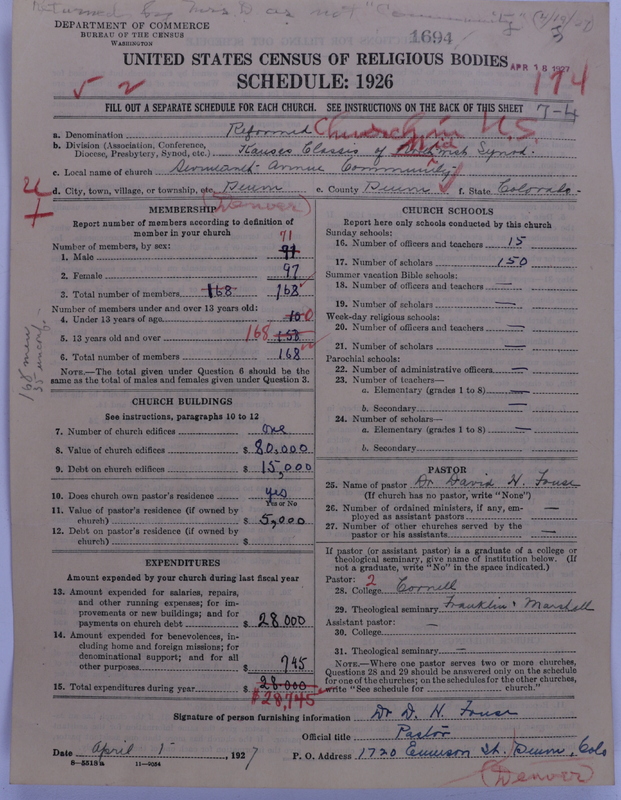 Returned by Mrs D as not "Community" (4/19/27)
DEPARTMENT OF COMMERCE
BUREAU OF THE CENSUS
WASHINGTON
1694
3
UNITED STATES CENSUS OF RELIGIOUS BODIES
APR 18 1927
SCHEDULE: 1926
174
FILL OUT A SEPARATE SCHEDULE FOR EACH CHURCH. SEE INSTRUCTIONS ON THE BACK OF THIS SHEET
7-4
a. Denomination Reformed Church in U.S.
b. Division (Association, Conference, Diocese, Presbytery, Synod, etc.) Kansas Classis of Synod.
c. Local name of church Avenue Community
d. City, town, village, or township, etc. e. County f. State Colorado
(Denver)
MEMBERSHIP
Report number of members according to definition of member in your church
Number of members, by sex:
71
1. Male
2. Female 97
3. Total number of members 168 168
Number of members under and over 13 years old:
4. Under 13 years of age 10 0
5. 13 years old and over 168 158
6. Total number of members 168
NOTE.—The total given under Question 6 should be the same as the total of males and females given under Question 3.
168 mem
CHURCH BUILDINGS
See instructions, paragraphs 10 to 12
7. Number of church edifices one
8. Value of church edifices $ 80,000
9. Debt on church edifices $ 15,000
10. Does church own pastor's residence yes
Yes or No
11. Value of pastor's residence (if owned by church) $ 5,000
12. Debt on pastor's residence (if owned by church) $
EXPENDITURES
Amount expended by your church during last fiscal year
13. Amount expended for salaries, repairs, and other running expenses; for improvements or new buildings; and for payments on church debt $ 28.000
14. Amount expended for benevolences, including home and foreign missions; for denominational support; and for all other purposes $ 745
15. Total expenditures during year $ 28.000
$28,745
CHURCH SCHOOLS
Report here only schools conducted by this church
Sunday schools:
16. Number of officers and teachers 15
17. Number of scholars 150
Summer vacation Bible schools:
18. Number of officers and teachers —
19. Number of scholars —
Week-day religious schools:
20. Number of officers and teachers —
21. Number of scholars —
Parochial schools:
22. Number of administrative officers —
23. Number of teachers—
a. Elementary (grades 1 to 8) —
b. Secondary —
24. Number of scholars—
a. Elementary (grades 1 to 8) —
b. Secondary —
PASTOR
25. Name of pastor Dr David H. Fouse
(If church has no pastor, write "None")
26. Number of ordained ministers, if any, employed as assistant pastors —
27. Number of other churches served by the pastor or his assistants —
If pastor (or assistant pastor) is a graduate of a college or theological seminary, give name of institution below. (If not a graduate, write "No" in the space indicated.)
Pastor: 2
28. College Cornell
29. Theological seminary Franklin & Marshall
Assistant pastor: —
30. College
31. Theological seminary —
NOTE.—Where one pastor serves two or more churches, Questions 28 and 29 should be answered only on the schedule for one of the churches; on the schedules for the other churches, write "See schedule for church."
Signature of person furnishing information Dr D. H. Fouse
Official title Pastor
Date April 1, 1927
P. O. Address 1720 Emerson St. Colo
8—5518a 11—9084
(Denver)